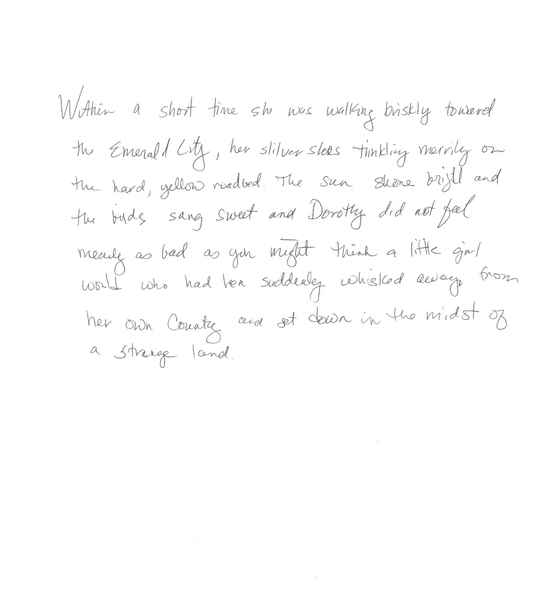 Within a short time she was walking briskly toward
the Emerald City, her slilver shoes tinkling merrily on
the hard, yellow roadbed. The sun shone bright and
the birds sang sweet and Dorothy did not feel
nearly as bad as you might think a little girl
would who had been suddenly whisked away from
her own County and set down in the midst of
a strange land.